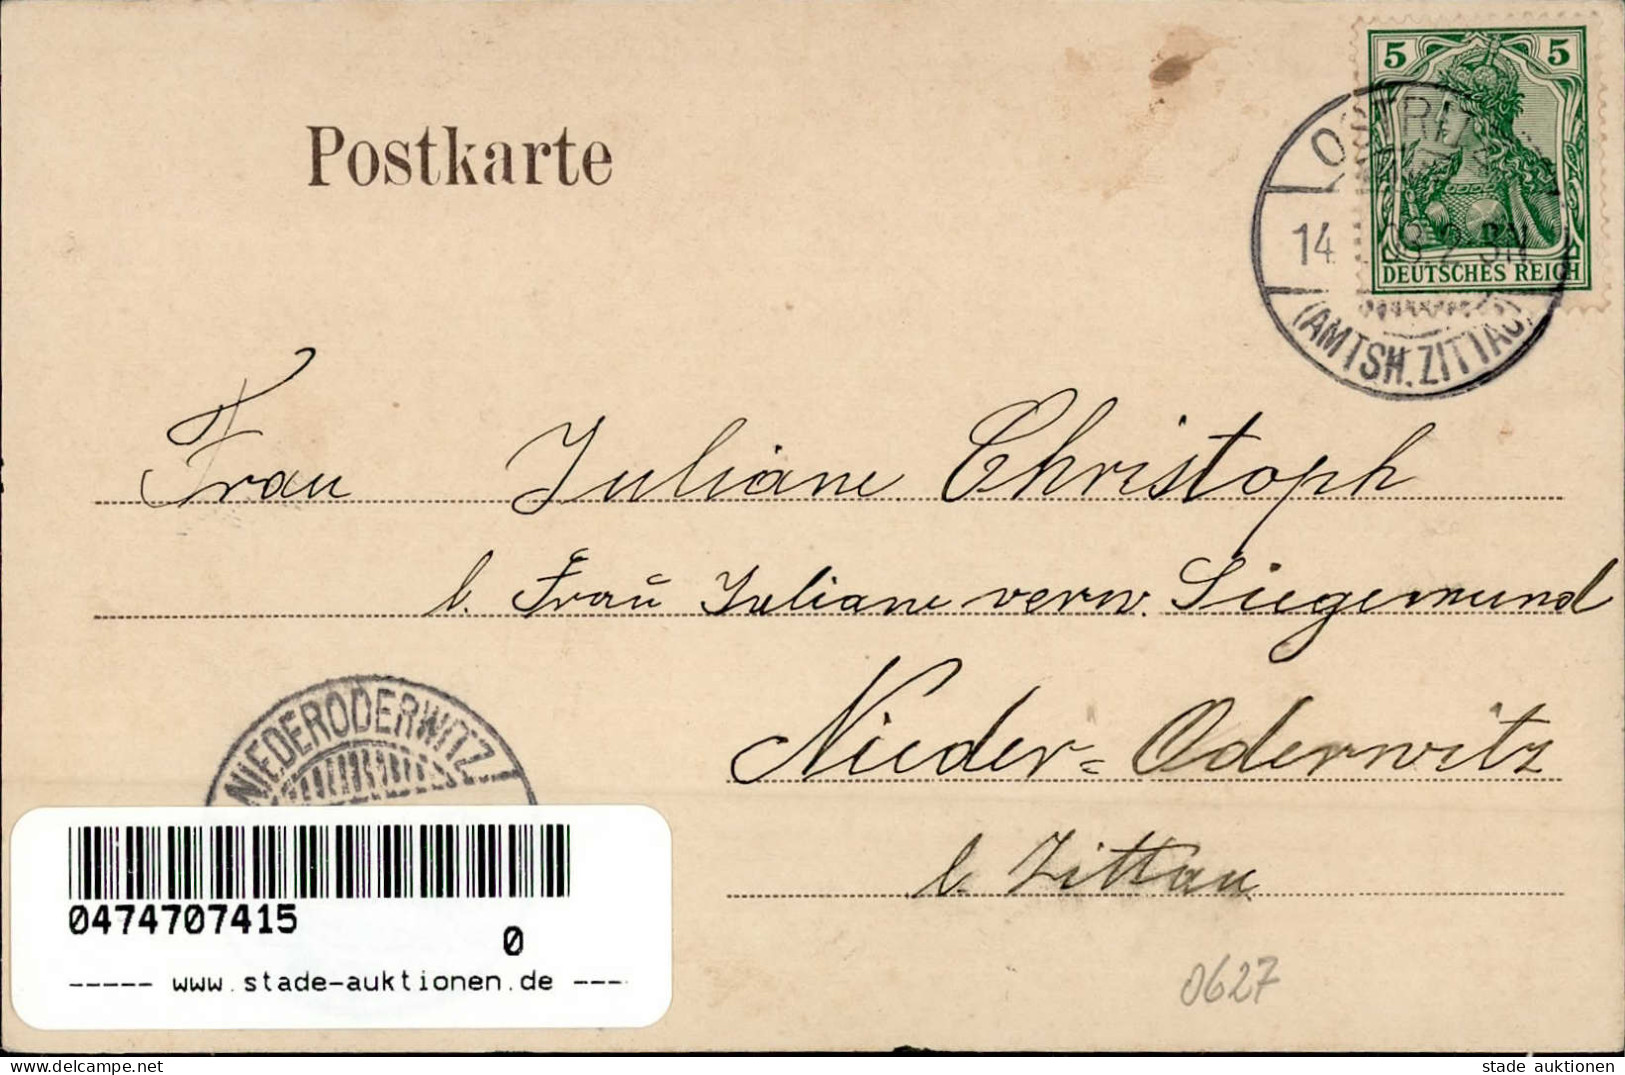 5 5
DEUTSCHES REICH
OSTRITZ
14 03. 2-3N.
(AMTSH. ZITTAU)
Postkarte
Frau Juliane Christoph
b. Frau Juliane verw. Siegemund
Nieder-Oderwitz
b. Zittau
NIEDERODERWITZ
0474707415
0
----- www.stade-auktionen.de ----
0627
stade auktionen